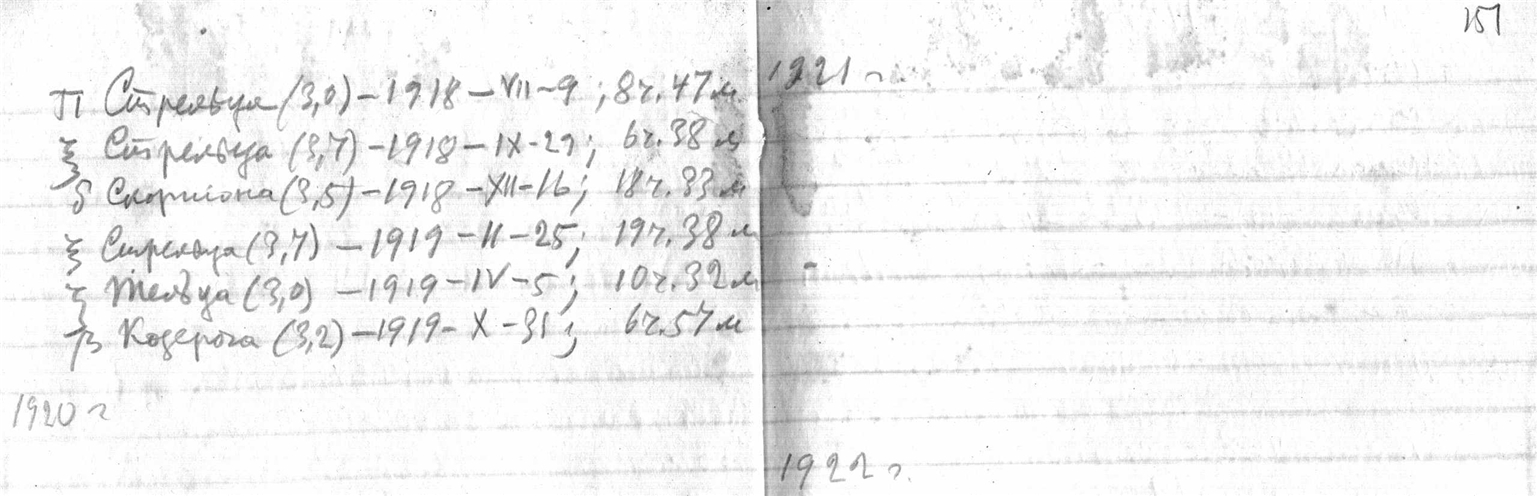 π Стрельца (3,0) – 1918 – VII – 9 ; 8ч. 47 м
ξ Стрельца (3,7) – 1918 – IX – 29 ; 6ч. 38 м
δ Скорпиона (3,5) – 1918 – XII – 16 ; 18ч. 33 м
ξ Стрельца (3,7) – 1919 – II – 25 ; 19ч. 38 м
ζ Тельца (3,0) – 1919 – IV – 5 ; 10ч. 32 м
β Козерога (3,2) – 1919 – X – 31 ; 6ч. 57 м
1920 г
151
1921 г
1922 г.